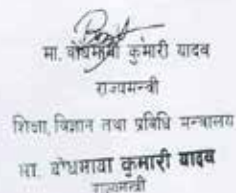 मा. बोधमाया कुमारी यादव
राज्यमन्त्री
शिक्षा, विज्ञान तथा प्रविधि मन्त्रालय
मा. बोधमाया कुमारी यादव
राज्यमन्त्री